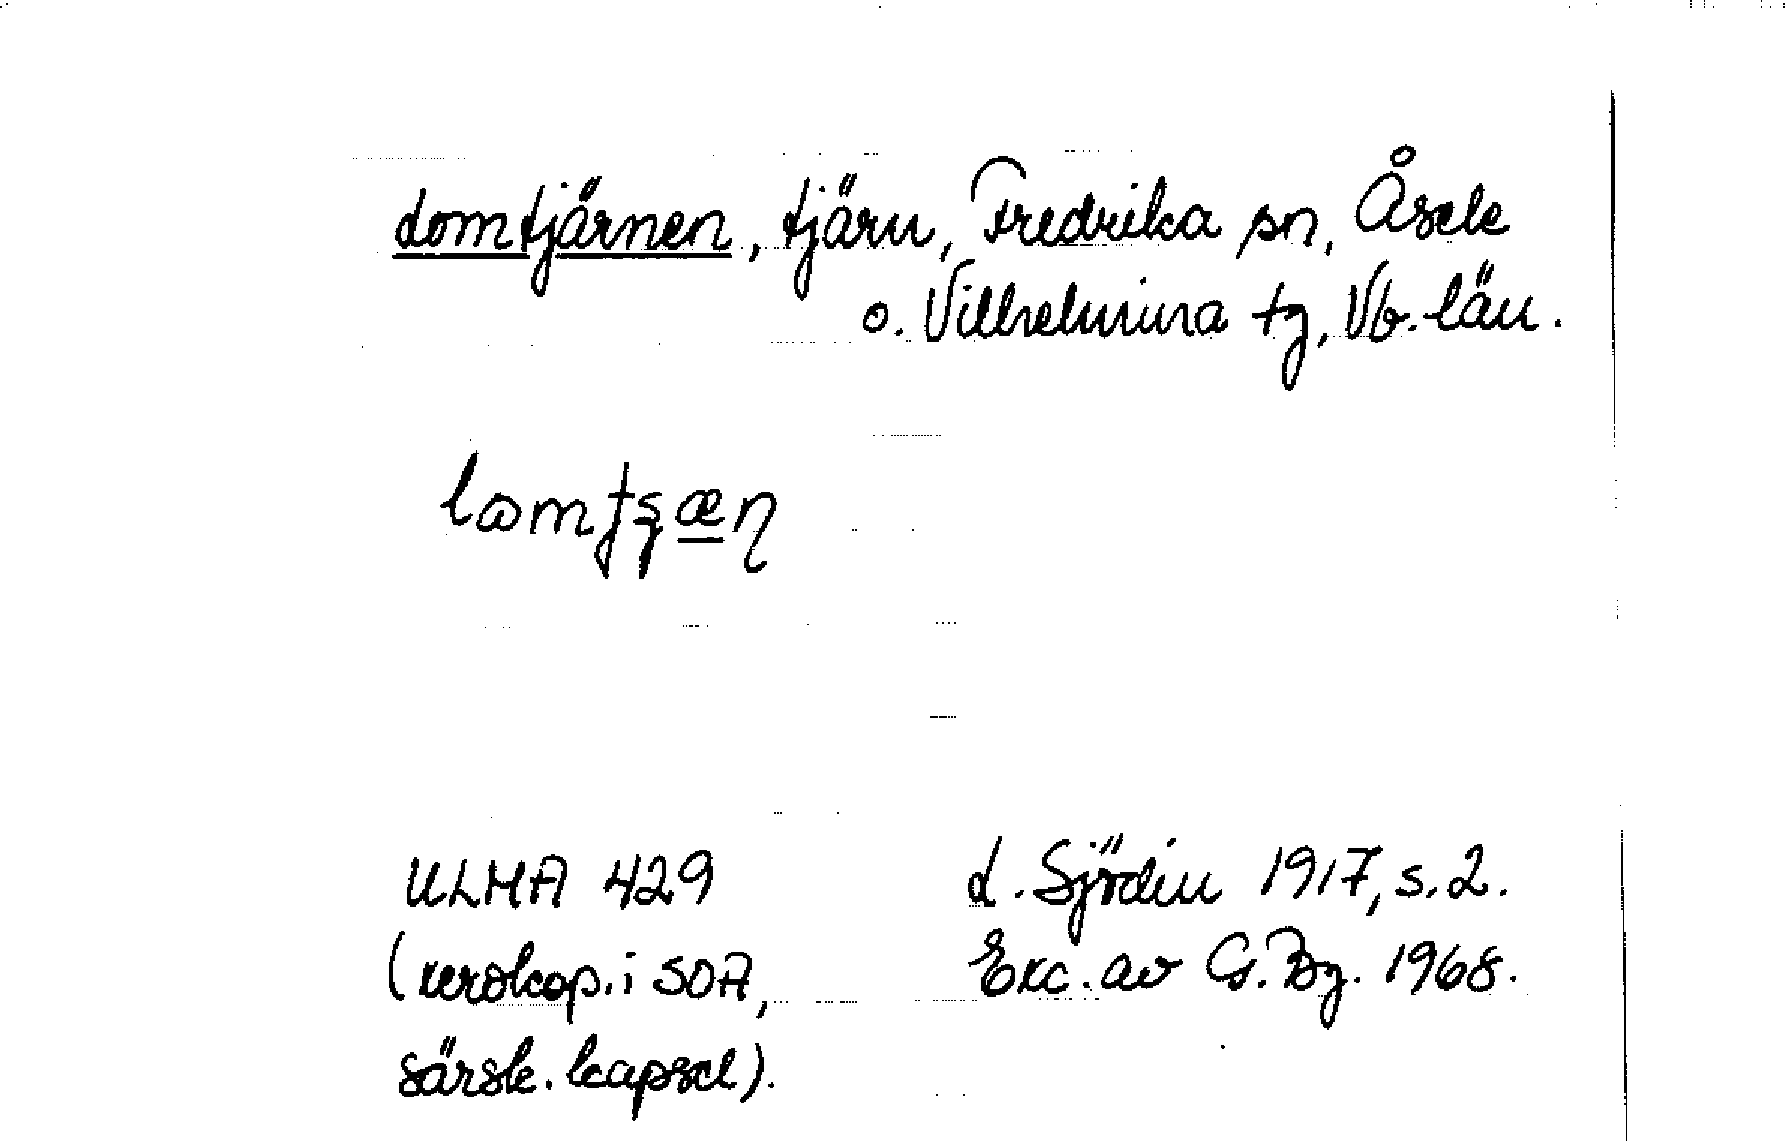 Lomtjärnen, tjärn, Fredrika sn, Åsele
o. Vilhelmina tg, Vb. län.
ULMA 429
(xerokop. i SOA,
särsk. kapsel).
L. Sjödin 1917, s. 2.
Exc. av G. Bg. 1968.